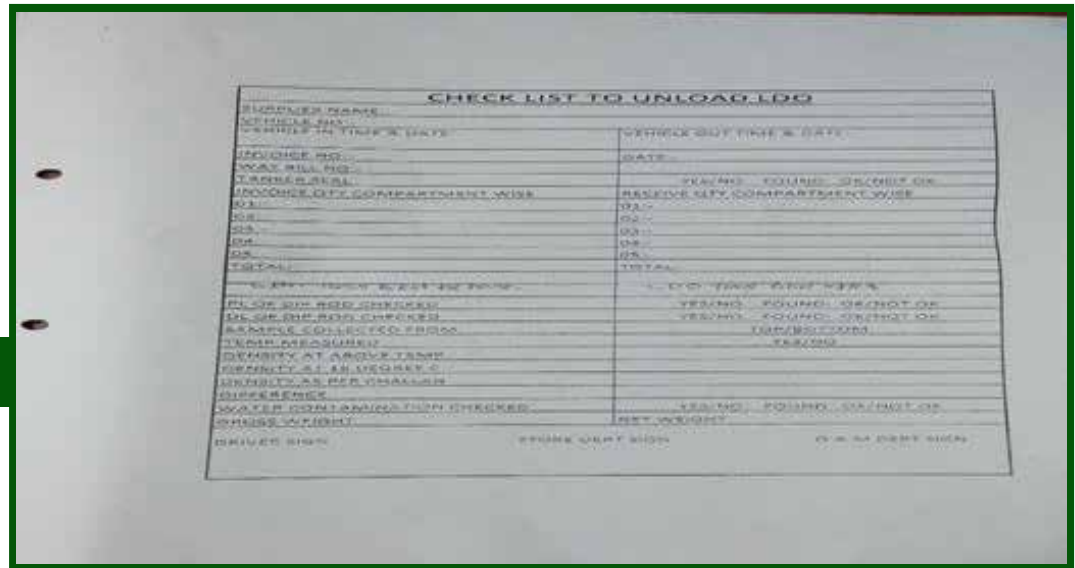 CHECK LIST TO UNLOAD LDO
SUPPLIES NAME:-
VEHICLE NO:-
VEHICLE IN TIME & DATE VEHICLE OUT TIME & DATE
INVOICE NO:- DATE:-
WAY BILL NO:-
TANKER SEAL YES/NO FOUND: OK/NOT OK
INVOICE QTY COMPARTMENT WISE RECEIVE QTY COMPARTMENT WISE
01:- 01:-
02:- 02:-
03:- 03:-
04: 04:-
05: 05:-
TOTAL: TOTAL
PL OF DIP ROD CHECKED YES/NO FOUND: OK/NOT OK
DL OF DIP ROD CHECKED YES/NO FOUND: OK/NOT OK
SAMPLE COLLECTED FROM TOP/BOTTOM
TEMP MEASURED YES/NO
DENSITY AT ABOVE TEMP
DENSITY AT 15 DEGREE C
DENSITY AS PER CHALLAN
DIFFERENCE
WATER CONTAMINATION CHECKED YES/NO FOUND OK/NOT OK
GROSS WEIGHT NET WEIGHT
DRIVER SIGN STORE DEPT SIGN O & M DEPT SIGN